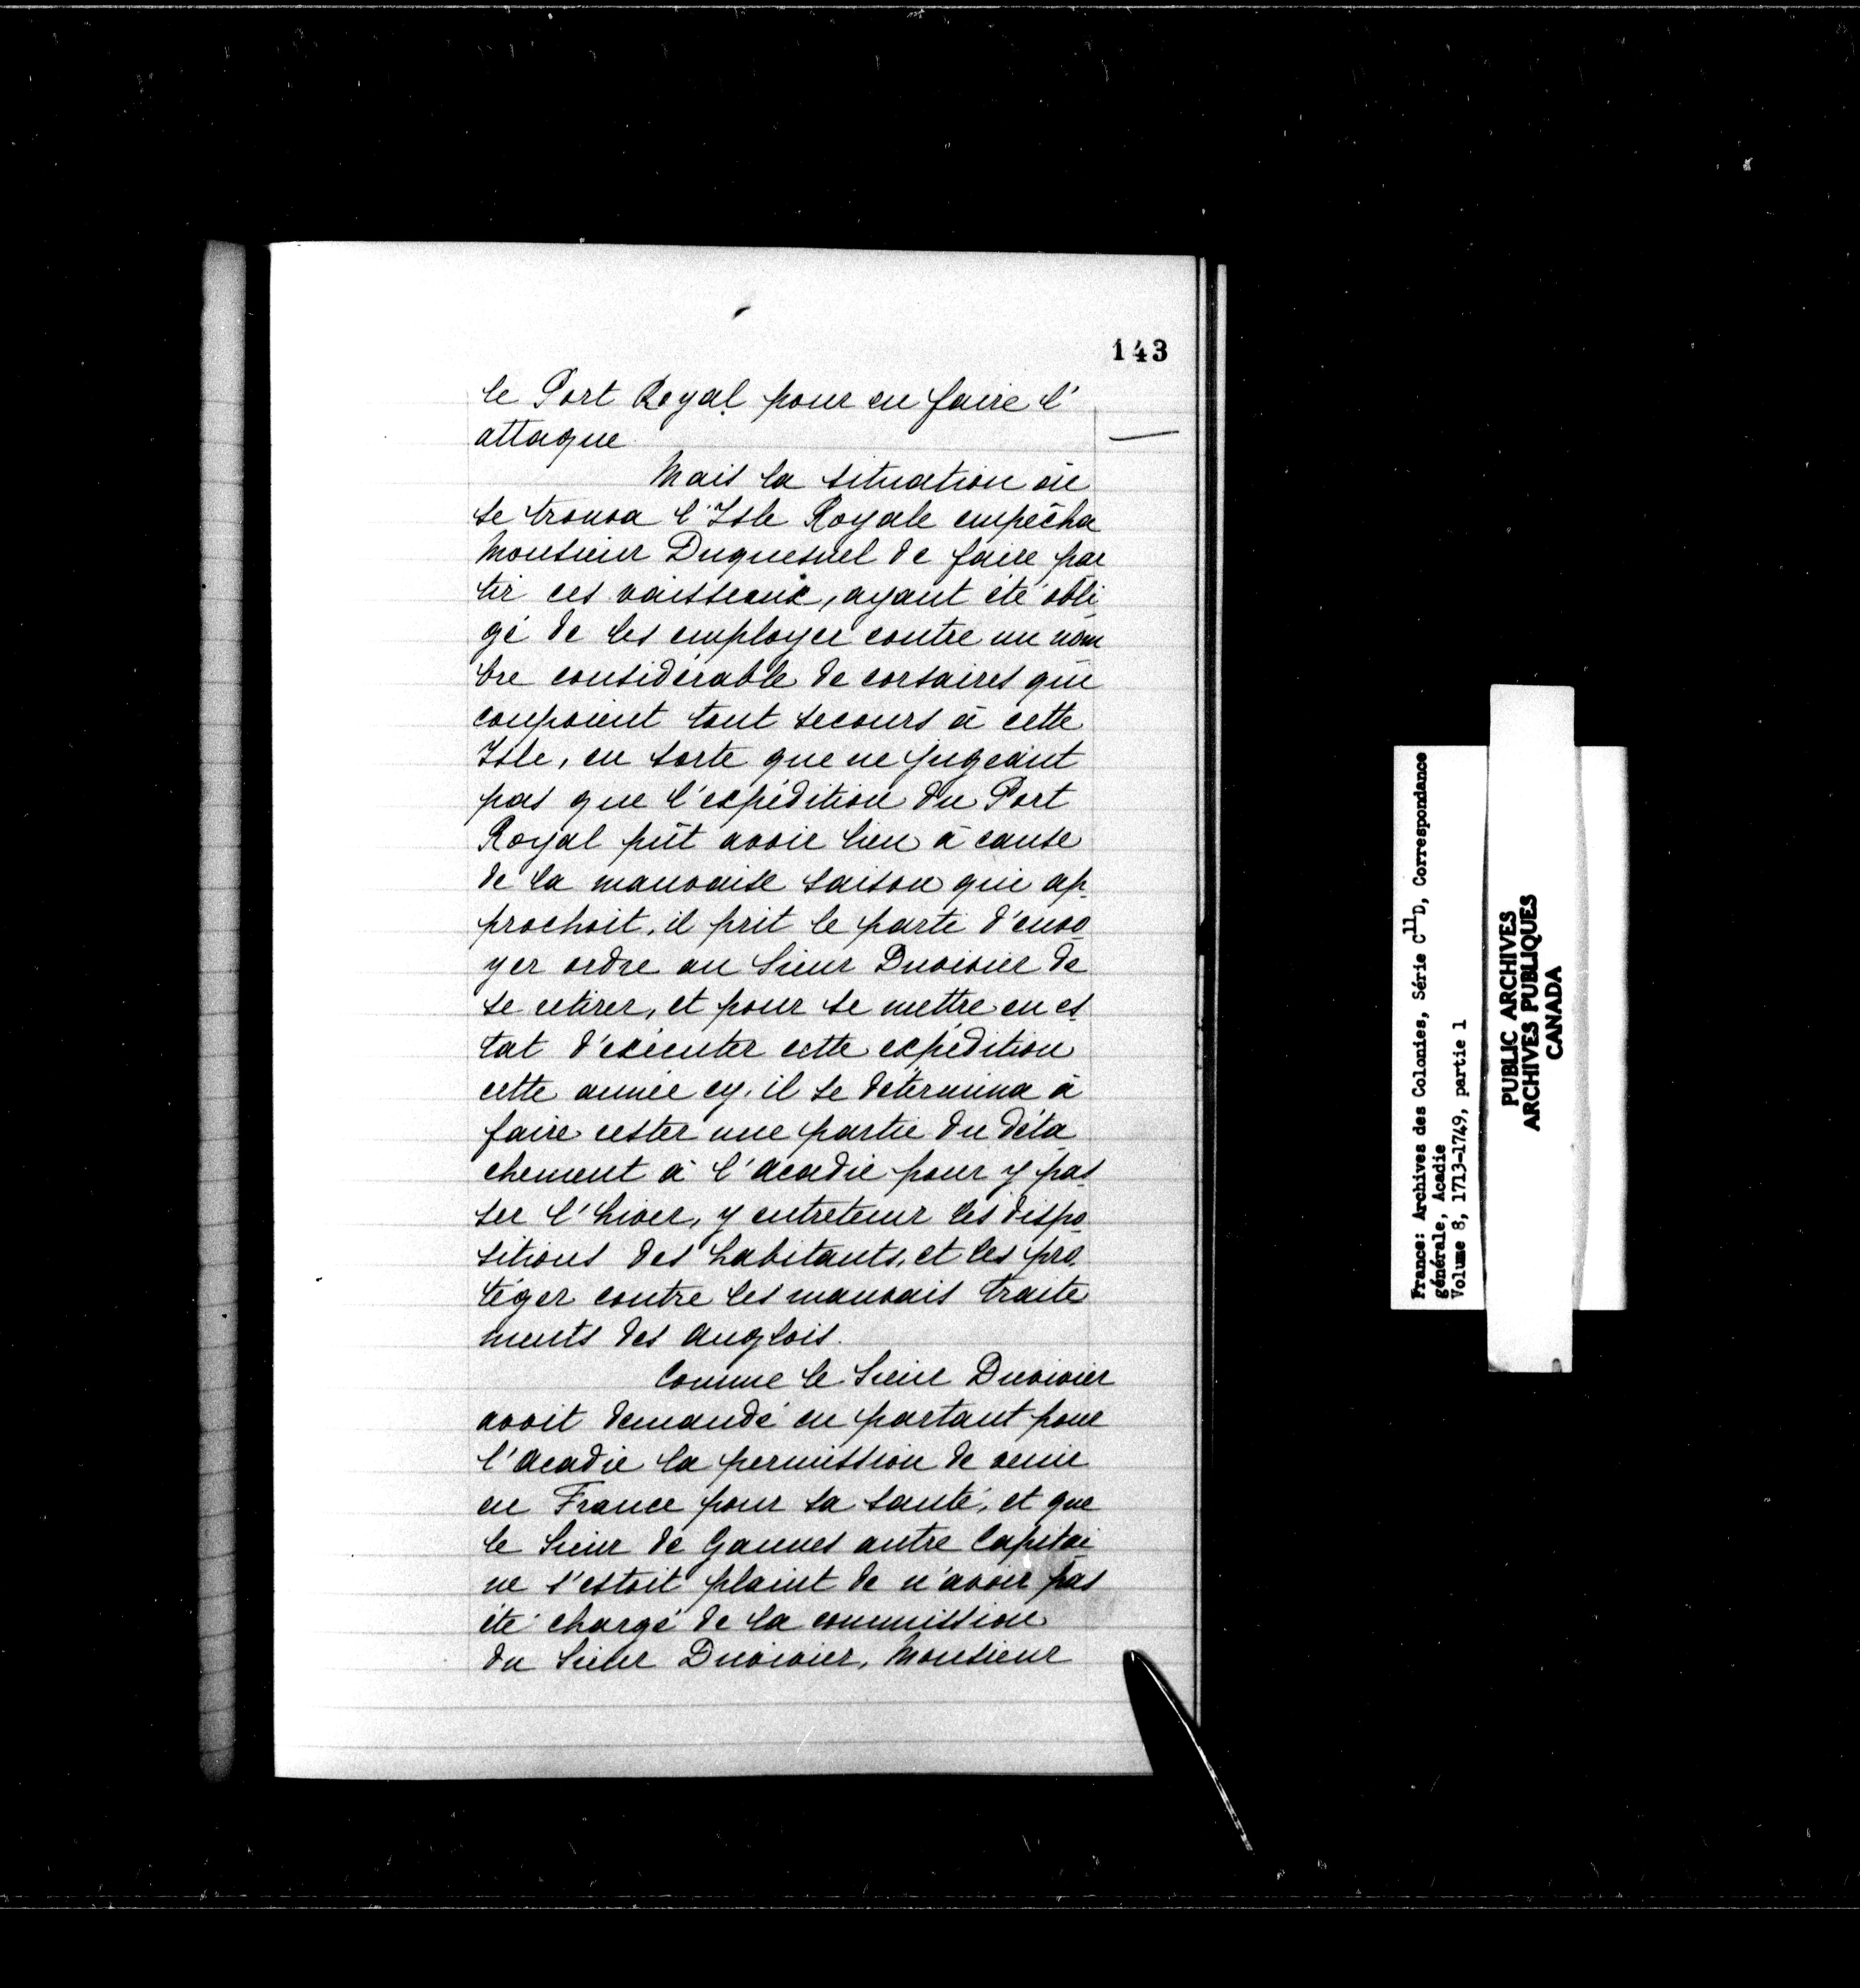 143
le Port Royal pour en faire l'
attaque
Mais la situation où
se trouva l'Isle Royale empêcha
Monsieur Duquesnel de faire par
tir ces vaisseaux, ayant été obli
gé de les employer contre un nom
bre considérable de corsaires qui
coupoient tout secours à cette
Isle, en sorte que ne jugeant
pas que l'expédition du Port
Royal pût avoir lieu à cause
de la mauvaise saison qui ap
prochoit, il prit le parti d'envo
yer ordre au Sieur Duvivier de
se retirer, et pour se mettre en es
tat d'exécuter cette expédition
cette année cy, il se détermina à
faire rester une partie du déta
chement à l'Acadie pour y pas
ser l'hiver, y entretenir les dispo
sitions des habitants, et les pro
téger contre les mauvais traite
ments des Anglois.
Comme le Sieur Duvivier
avoit demandé en partant pour
l'Acadie la permission de venir
en France pour sa santé, et que
le Sieur de Gannes autre Capitai
ne s'estoit plaint de n'avoir pas
été chargé de la commission
du Sieur Duvivier, Monsieur
France: Archives des Colonies, Série C11D, Correspondance
générale, Acadie
Volume 8, 1713-1749, partie 1
PUBLIC ARCHIVES
ARCHIVES PUBLIQUES
CANADA